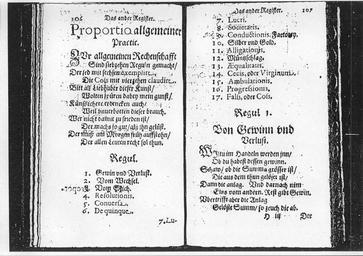 106 Das ander Register.
Proportio allgemeiner
Practic.
Der allgemeinen Rechenschafft
Sind siebzehen Regeln gemacht/
Der jed mit sechsen
Die Coß mit vierzehn claudirt.
Bitt all Liebhaber dieser Kunst/
Wolten haben guntst/
Künstlicher
Weil heut
Wer nicht damit zu frieden ist/
Der machs so gut/ als ihn gelüst.
Der muß am Morgen früh auffstehn/
Der allen Leuten recht sol thun.
Regul.
1. Gewin und Verlust.
2. Vom Wechsel.
3. Vom Stich.
4. Resolutionis.
5. Conversa.
6. De quinque.
7. Lu-
Das ander Register. 107
7. Lucri.
8. Societatis.
9. Conductionis. Factorey.
10. Silber und Gold.
11. Alligationis.
12. Müntzschlag.
13. Æqualitatis.
14. Cecis, oder Virginum.
15. Ambulationis.
16. Progressionis.
17. Falsi, oder Coß.
Regul 1.
Von Gewinn und
Verlust.
Wiltu im Handeln werden inn/
Ob du habest dessen gewinn.
Schaw/ ob die Summa grösser ist/
Die aus dem thun gelöset ist/
Dann die anlag. Und darnach nim
Eins vom andern. Rest gibt Gewin.
Ubertrifft aber die Anlag
Gelöste Summ/ so zeuch die ab.
H iij Der